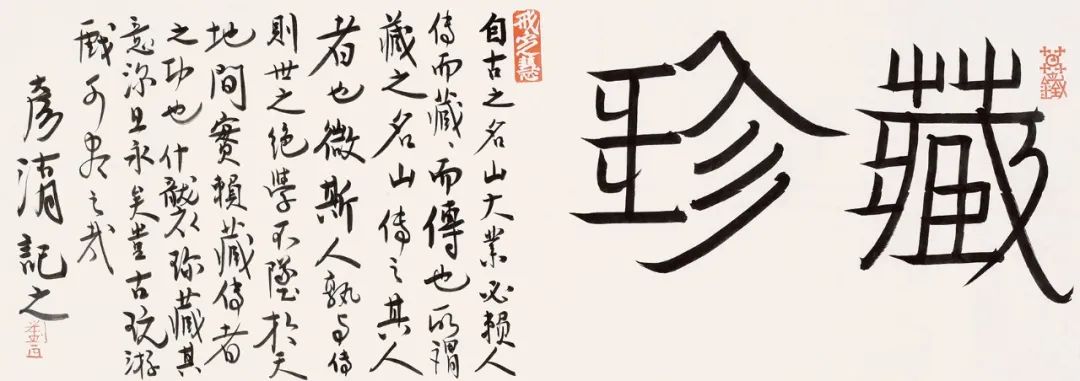 藏珍
戒定慧
自古之名山大業必賴人
傳而藏、而傳也所謂
藏之名山傳之其人
者也微斯人孰与傳
則世之絕學不墜於天
地間實賴藏傳者
之功也什襲珍藏其
意深且永矣豈古玩游
戲可盡之哉
彥清記之